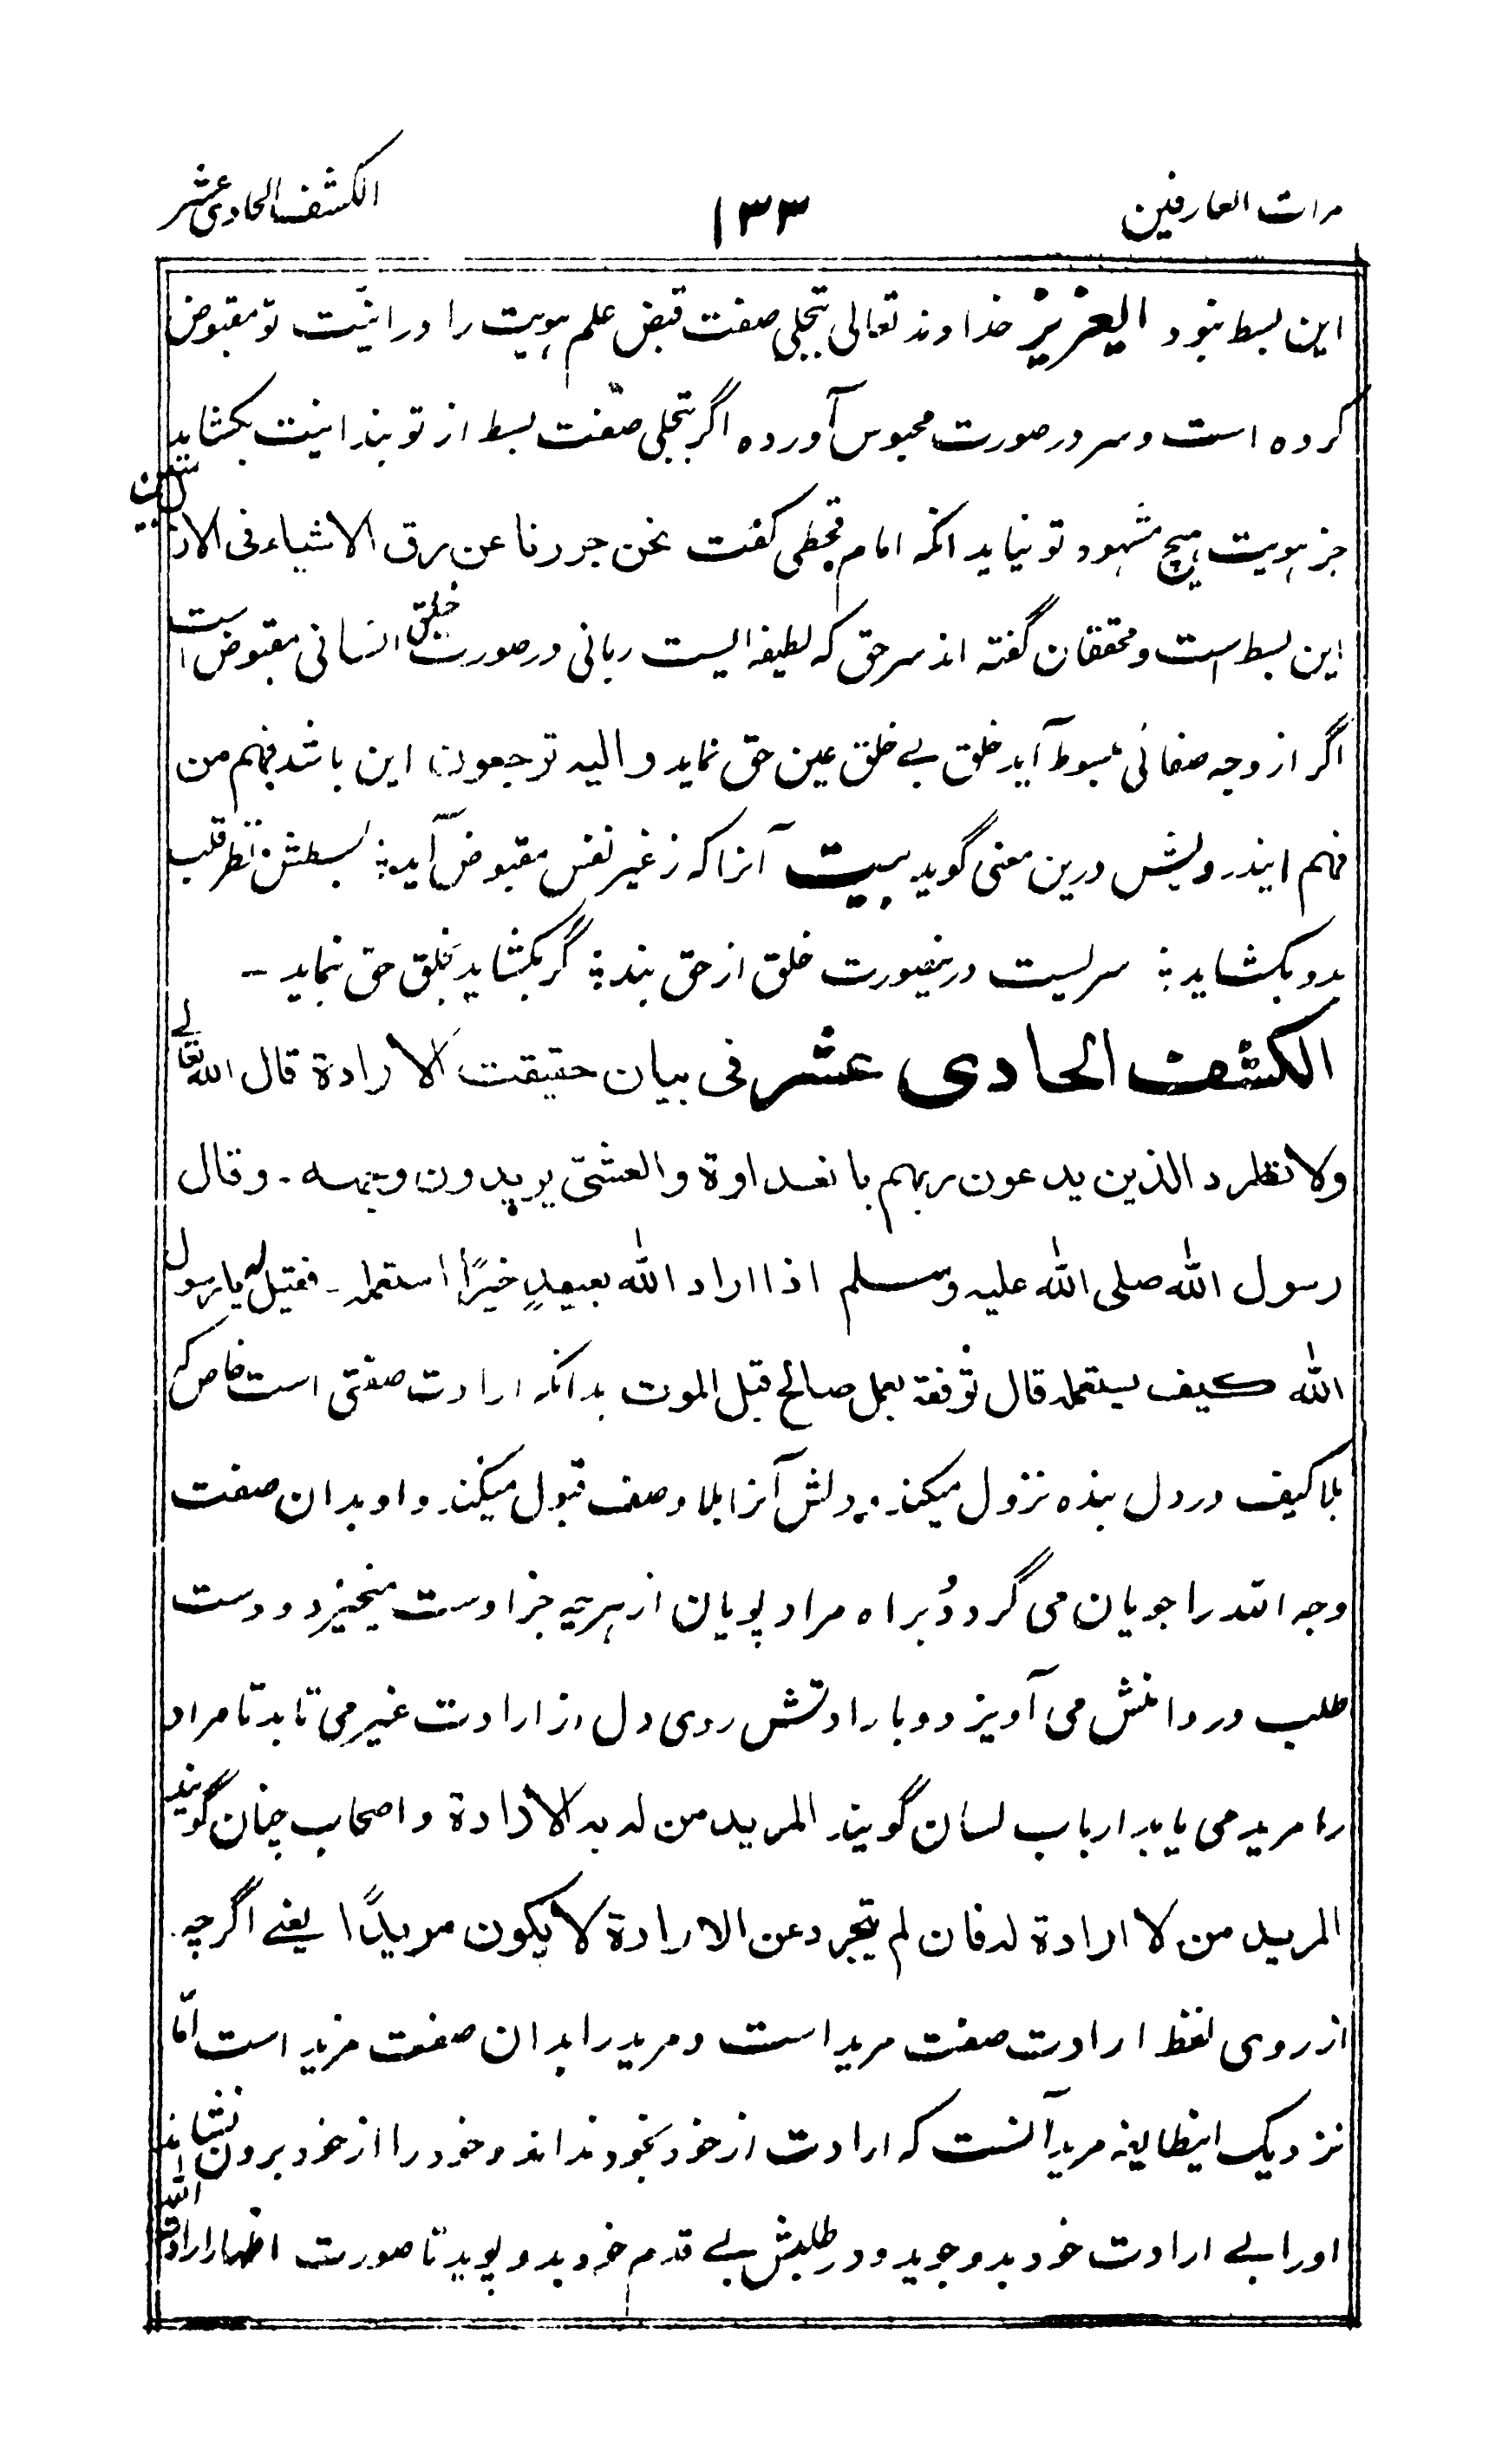 مرات العارفین ۱۳۳ الکشف الحادی عشر
این بسط نبود العزیز خداوند تعالی بتجلی صفت قبض علم هویت را در انیّت تو مقبوض
کرده است و سر در صورت محبوس آورده اگر بتجلی صفت بسط از تو بند انیت بکشاید
جز هویت هیچ مشهود تو نیاید انکه امام قحطی گفت نحن جررنا عن برق الاشیاء فی الاز
این بسط است و محققان گفته اند سر حق که لطیفه ایست ربانی در صورت خلق انسانی مقبوض است
اگر از وجه صفائی مبسوط آید خلق بے خلق عین حق نماید و الیه ترجعون این باشد فهم من
فهم ایندرویش درین معنی گوید بیت آنرا که ز غیر نفس مقبوض آید ؛ بسطش نظر قلب
بدو بکشاید ؛ سریست درینصورت خلق از حق بند ؛ گر بکشاید بخلق حق نماید ۔
الکشف الحادی عشر فی بیان حقیقت الارادة قال الله تعالے
ولا تطرد الذین یدعون ربهم بالغداوة والعشیّ یریدون وجهه ۔ وقال
رسول الله صلی الله علیه وسلم اذا اراد الله بعبدٍ خیرًا استعمله ۔ فقیل له یا رسول
الله کیف یستعمله قال توفقه بعمل صالح قبل الموت بدانکه ارادت صفتی است خاص که
بلا کیف در دل بنده نزول میکند و دلش آنرا بلا وصف قبول میکند و او بدان صفت
وجه الله را جویان می گردد و براه مراد پویان از هرچه جز اوست میخیزد و دست
طلب در دامنش می آویزد و با رادتش روی دل از ارادت غیر می تابد تا مراد
را مرید می یابد ارباب لسان گویند المرید من له به الارادة و اصحاب چنان گویند
المرید من لا ارادة له فان لم یتجرد عن الارادة لا یکون مریدًا یعنے اگرچه
از روی لفظ ارادت صفت مرید است و مرید را بدان صفت مزید است امّا
نزدیک اینطایفه مرید آنست که ارادت از خود بخود نداند و خود را از خود برون نشاند
او را بے ارادت خود بدو جوید و در طلبش بے قدم خود بدو پوید تا صورت اظهار ارادة الله